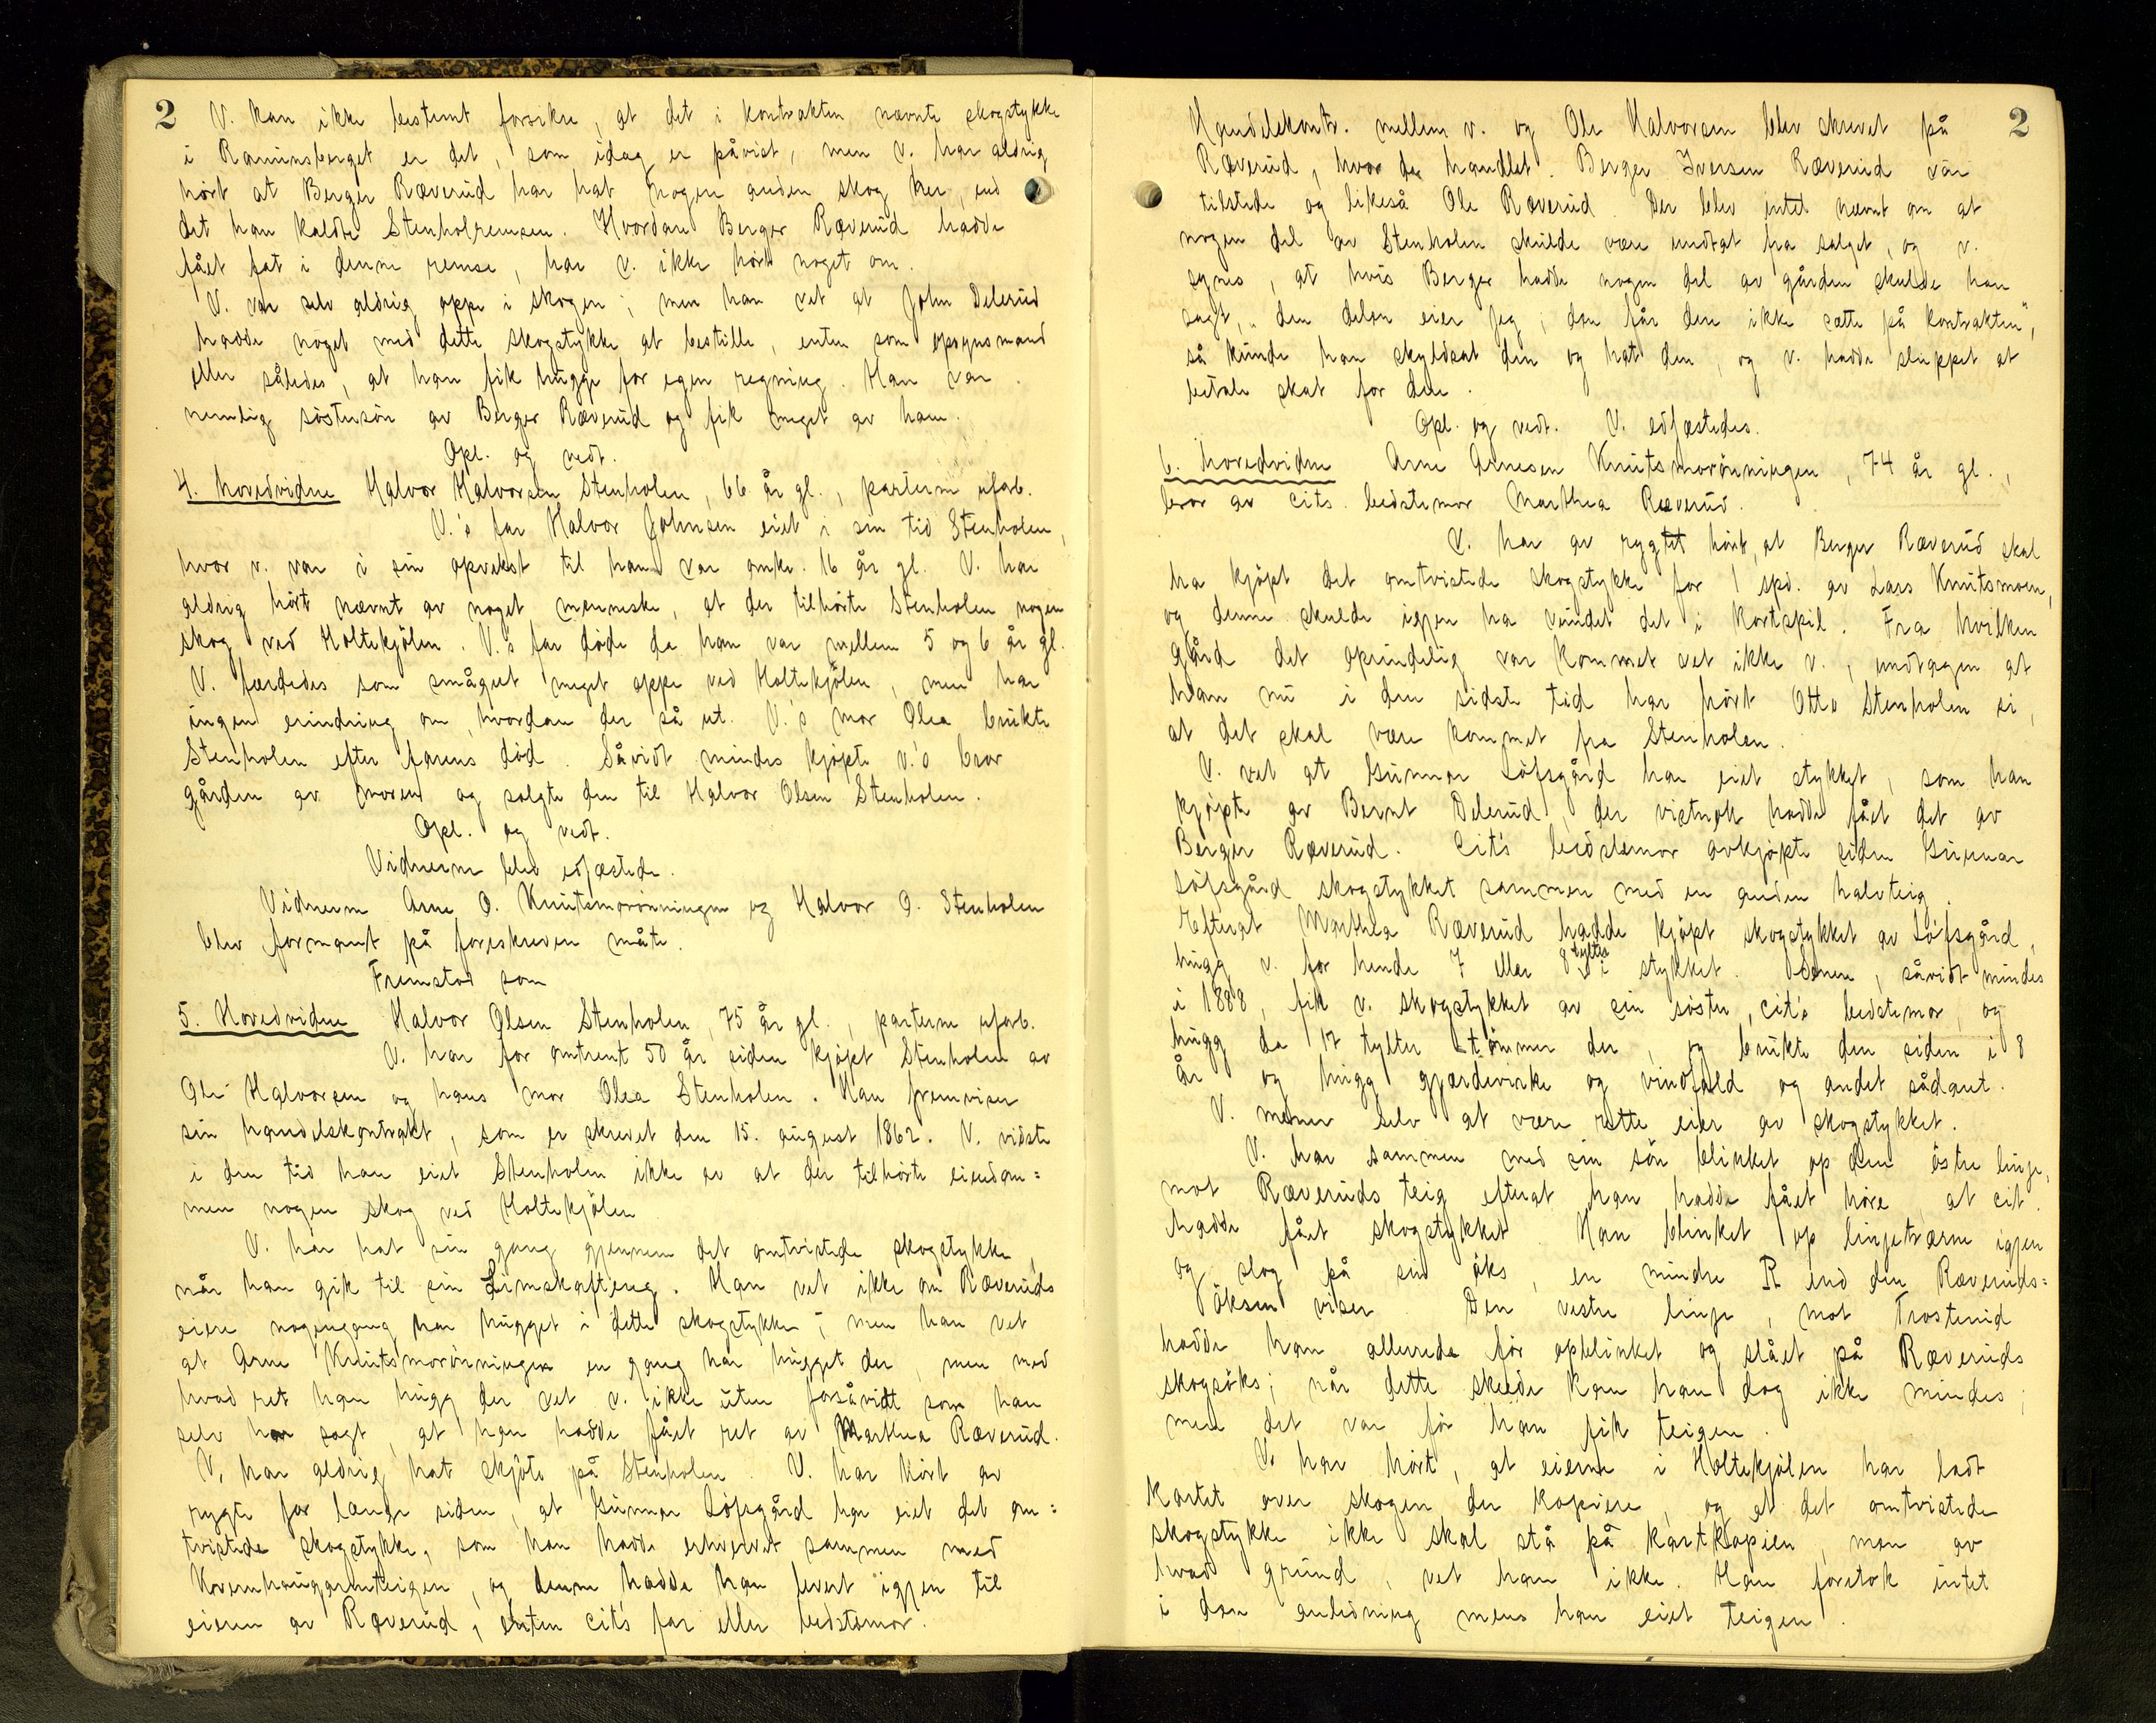 2
V. kan ikke bestemt forsikre, at det i kontrakten nævnte skogstykke
i Ramunsberget er det, som idag er påvist, men v. har aldrig
hørt at Berger Ræverud har hat nogen anden skog her, end
det han kaldte Stenholremsen. Hvordan Berger Ræverud hadde
fået fat i denne remse, har v. ikke hørt noget om.
V. var selv aldrig oppe i skogen; men han vet at John Delerud
hadde noget med dette skogstykke at bestille, enten som opsynsmand
eller således, at han fik hugge for egen regning. Han var
nemlig søstersøn av Berger Ræverud og fik meget av ham.
Opl. og vedt.
4. hovedvidne Halvor Halvorsen Stenholen, 66 år gl., parterne uforb.
V.'s far Halvor Johnsen eiet i sin tid Stenholen,
hvor v. var i sin opvekst til han var omkr. 16 år gl. V. har
aldrig hørt nævnt av noget menneske, at der tilhørte Stenholen nogen
skog ved Holtekjølen. V.'s far døde da han var mellem 5 og 6 år gl.
V. færdedes som smågut meget oppe ved Holtekjølen, men har
ingen erindring om, hvordan der så ut. V.'s mor Olea brukte
Stenholen efter farens død. Såvidt mindes kjøpte v.'s bror
gården av moren og solgte den til Halvor Olsen Stenholen.
Opl. og vedt.
Vidnerne blev edfæstede.
Vidnerne Arne A. Knutsmorønningen og Halvor O. Stenholen
blev formant på foreskreven måte.
Fremstod som
5. Hovedvidne Halvor Olsen Stenholen, 75 år gl., parterne uforb.
V. har for omtrent 50 år siden kjøpt Stenholen av
Ole Halvorsen og hans mor Olea Stenholen. Han fremviser
sin handelskontrakt, som er skrevet den 15. august 1862. V. vidste
i den tid han eiet Stenholen ikke av at der tilhørte eiendom=
men nogen skog ved Holtekjølen
V. har hat sin gang gjennem det omtvistede skogstykke,
når han gik til sin . Han vet ikke om Ræveruds
eiere nogengang har hugget i dette skogstykke; men han vet
at Arne Knutsmorønningen en gang har hugget der, men med
hvad ret han hugg der vet v. ikke uten forsåvidt som han
selv har sagt, at han hadde fået ret av Marthea Ræverud.
V. har aldrig hat skjøte på Stenholen. V. har hørt av
rygte for længe siden, at Gunnar Löfsgård har eiet det om=
tvistede skogstykke, som han hadde erhvervet sammen med
Kvernhaugarmteigen, og denne hadde han levert igjen til
eieren av Ræverud, enten cit's far eller bedstemor.
2
Handelskontr. mellem v. og Ole Halvorsen blev skrevet på
Ræverud, hvor de handlet. Berger Iversen Ræverud var
tilstede og likeså Ole Ræverud. Der blev intet nævnt om at
nogen del av Stenholen skulde være undtat fra salget, og v.
synes, at hvis Berger hadde nogen del av gården skulde han
sagt, "den delen eier jeg; den får dere ikke sætte på kontrakten",
så kunde han skyldsat den og hat den, og v. hadde sluppet at
betale skat for den.
Opl. og vedt. V. edfæstedes.
6. hovedvidne Arne Arnesen Knutsmorønningen, 74 år gl.,
bror av cits. bedstemor Marthea Ræverud.
V. har av rygtet hørt, at Berger Ræverud skal
ha kjøpt det omtvistede skogstykke for 1 spd. av Lars Knutsmoen,
og denne skulde igjen ha vundet det i kortspil. Fra hvilken
gård det oprindelig var kommet vet ikke v., undtagen at
han nu i den sidste tid har hørt Otto Stenholen si,
at det skal være kommet fra Stenholen.
V. vet at Gunnar Löfsgård har eiet stykket, som han
kjøpte av Bernt Delerud, der vistnok hadde fået det av
Berger Ræverud. Cit's bedstemor avkjøpte siden Gunnar
Löfsgård skogstykket sammen med en anden halvteig.
Efterat Marthea Ræverud hadde kjøpt skogstykket av Löfsgård,
hugg v. for hende 7 eller 8 tylfter i stykket. Senere, såvidt mindes
i 1888, fik v. skogstykket av sin søster, cit's bedstemor, og
hugg da 17 tylter tømmer der, og brukte den siden i 8
år og hugg gjærdevirke og vindfald og andet sådant.
V. mener selv at være rette eier av skogstykket.
V. har sammen med sin søn blinket op den østre linje,
mot Ræveruds teig efterat han hadde fået høre, at cit.
hadde fået skogstykket. Han blinket op linjetrærne igjen
og slog på sin øks, en mindre R end den Ræveruds=
øksen viser. Den vestre linje, mot Trosterud
hadde han allerede før opblinket og slået på Ræveruds
skogsøks; når dette skede kan han dog ikke mindes;
men det var før han fik teigen.
V. har hørt, at eierne i Holtekjølen har ladt
kartet over skogen der kopiere, og at det omtvistede
skogstykke ikke skal stå på kartkopien, men av
hvad grund, vet han ikke. Han foretok intet
i den anledning mens han eiet teigen.